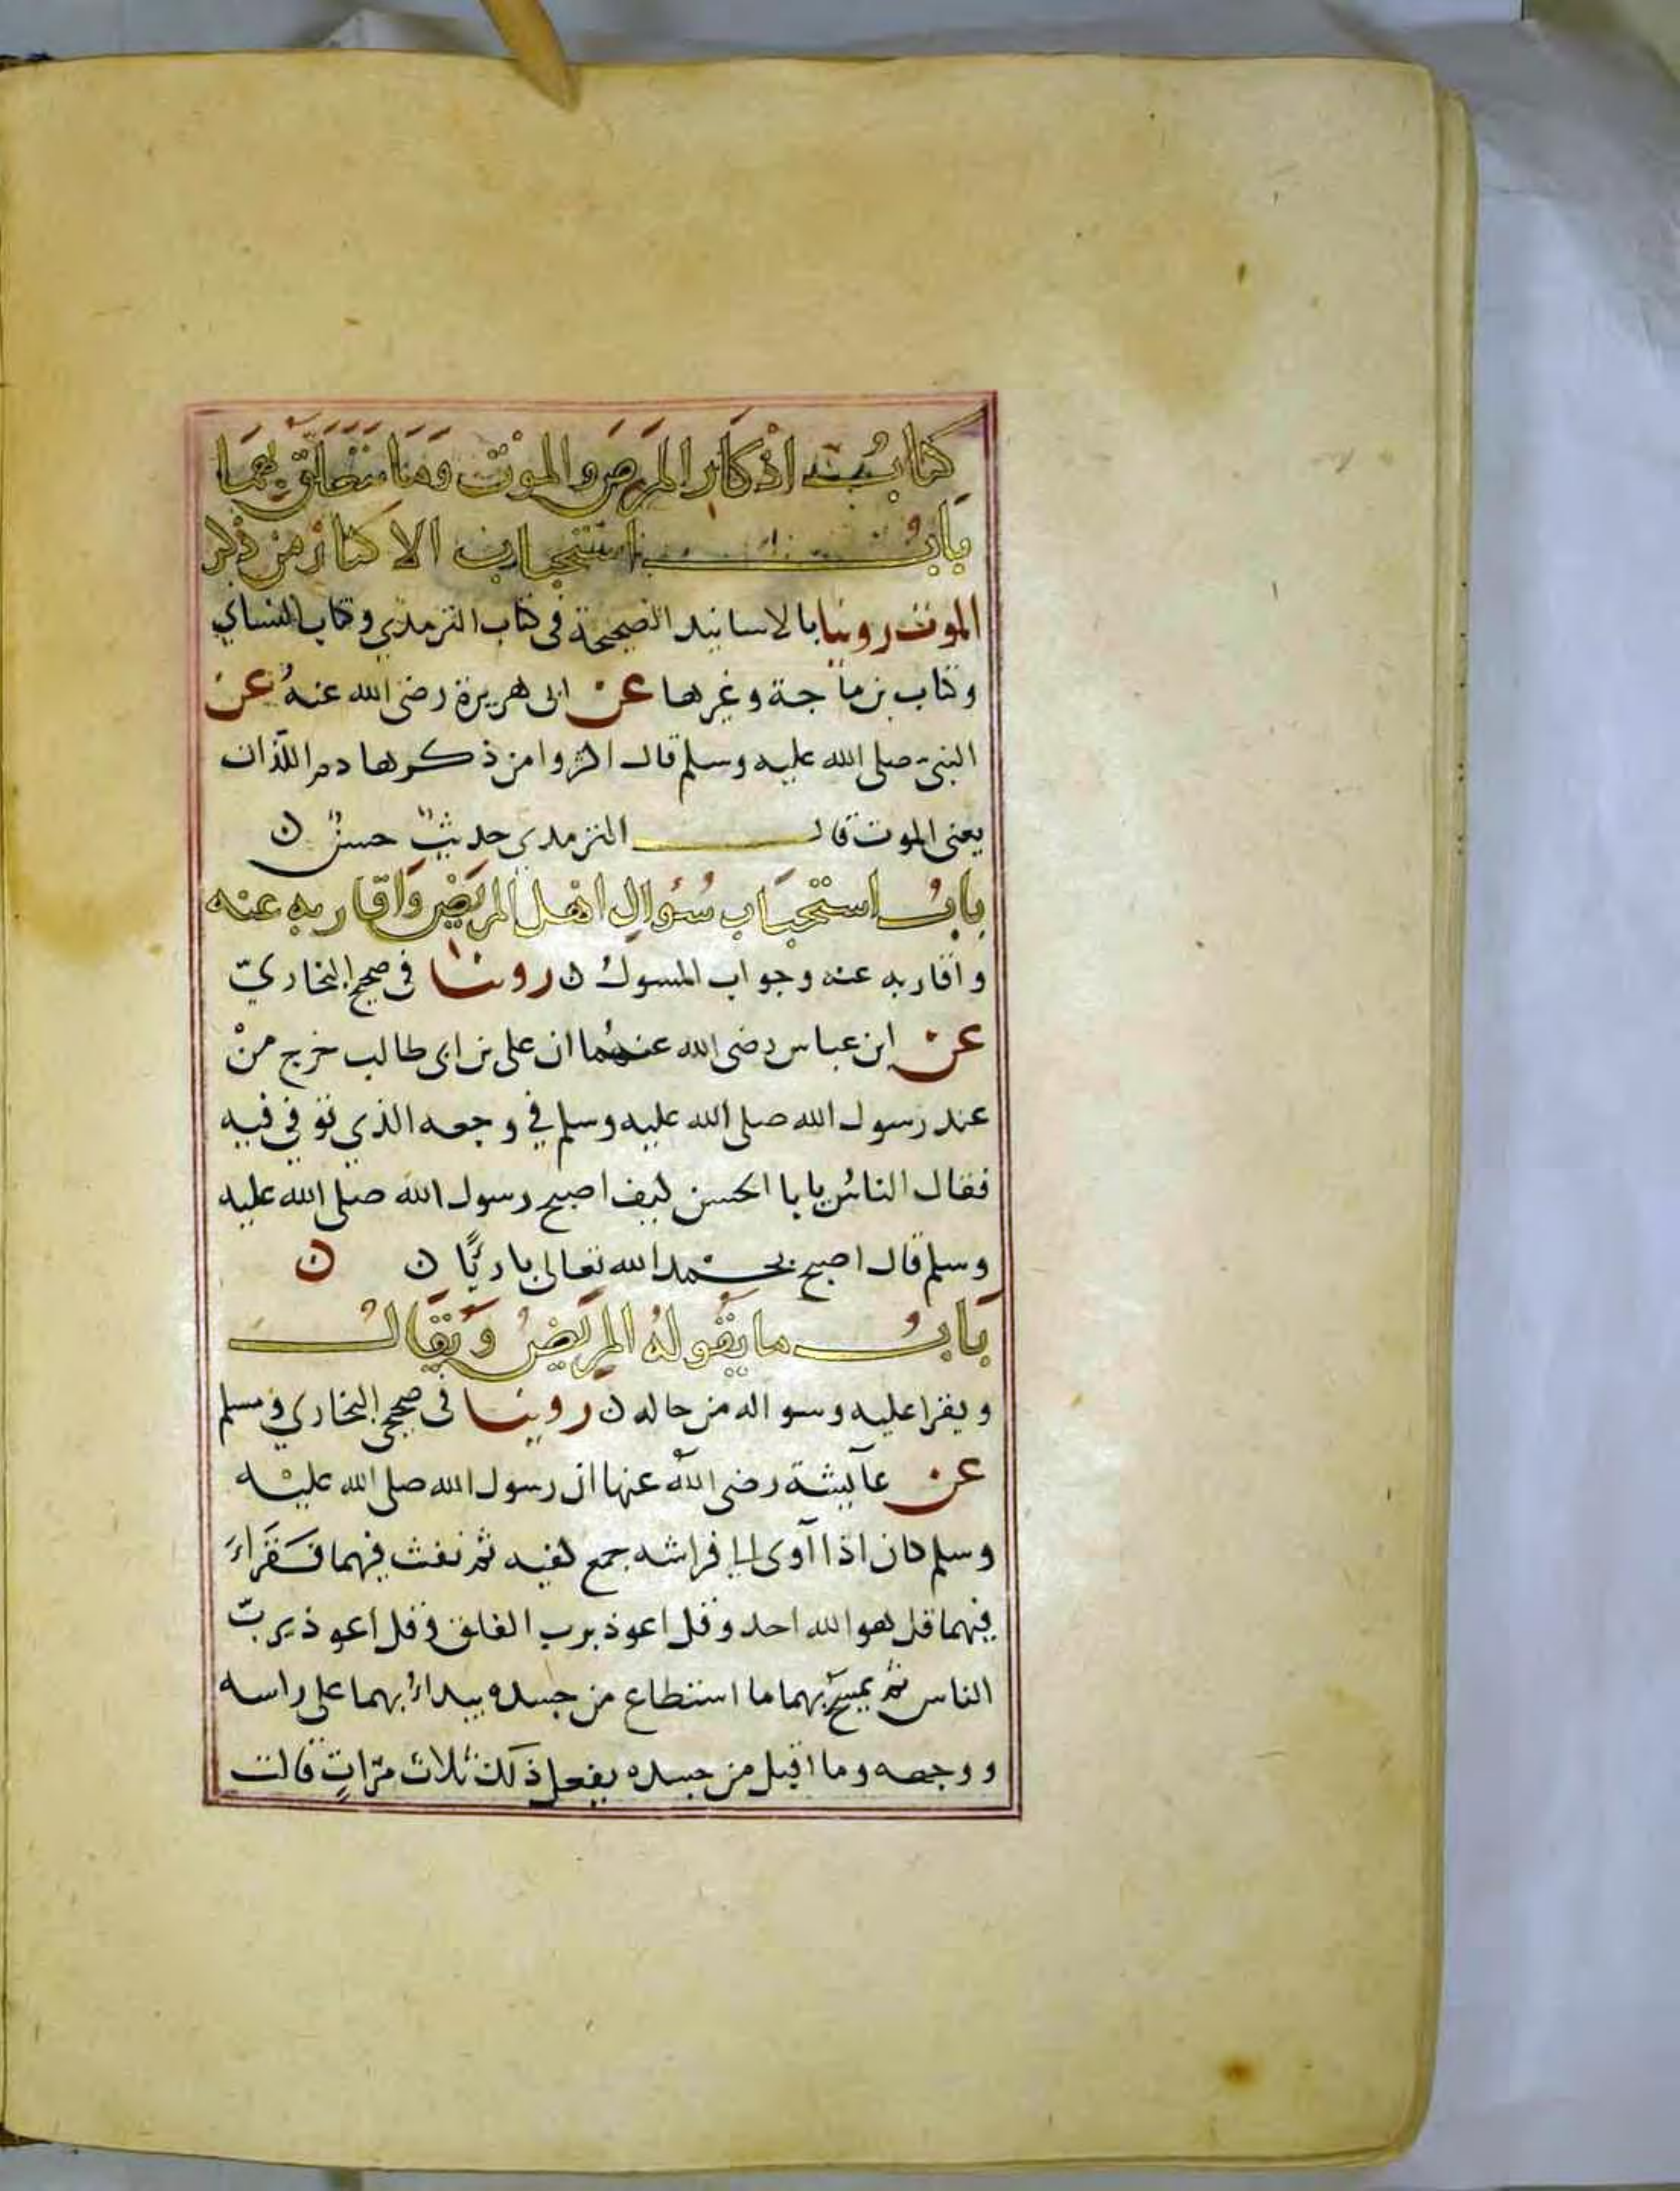 كتابُ اذكار المرض والموت وما يتعلق بهما
بابُ استحباب الاكثار من ذكر
الموت روينا بالاسانيد الصحيحة فى كتاب الترمذي وكتاب النساي
وكتاب بن ماجة وغيرها عن ابى هريرة رضى الله عنهُ عن
النبى صلى الله عليه وسلم قال اكثروا من ذكرها دم اللّذان
يعنى الموت قال الترمدي حديثٌ حسنٌ ن
بابُ استحبَاب سُؤَالِ اهل المريض وَاقَاربه عنه
واقاربه عنه وجواب المسول ن روينا فى صحيح البخاريّ
عن ابن عباس رضى الله عنهُما ان على بن ابى طالب خرج منْ
عند رسول الله صلى الله عليه وسلم في وجعه الذي توفي فيه
فقال الناسُ يابا الحسن كيف اصبح رسول الله صلى الله عليه
وسلم قال اصبح بحمد الله تعالى باريًّا ن ن
بَابُ ما يَقُولهُ المريَضُ وَيُقَالُ
ويقرا عليه وسواله من حاله ن روينا فى صحيحى البخاري ومسلم
عن عايشة رضى اللّه عنها ان رسول الله صلى الله عليْه
وسلم كان اذا آوى الى فراشه جمع كفيه ثم نفث فيهما فَقَراءَ
فيهما قل هو الله احد وقل اعوذ برب الفلق وقل اعوذ برَبّ
الناس ثم يمسح بهما ما استطاع من جسده يبداءُ بهما على راسه
ووجهه وما اقبل من جسده يفعل ذلك ثلاث مرّاتٍ قالت